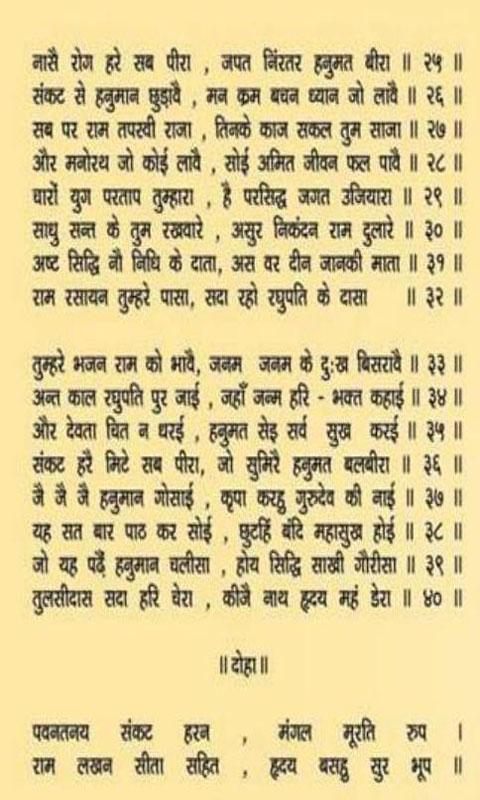 नासै रोग हरे सब पीरा , जपत निंरतर हनुमत बीरा ॥ २५ ॥
संकट से हनुमान छुड़ावै , मन क्रम बचन ध्यान जो लावै ॥ २६ ॥
सब पर राम तपस्वी राजा , तिनके काज सकल तुम साजा ॥ २७ ॥
और मनोरथ जो कोई लावै , सोई अमित जीवन फल पावै ॥ २८ ॥
चारों युग परताप तुम्हारा , है परसिद्ध जगत उजियारा ॥ २९ ॥
साधु सन्त के तुम रखवारे , असुर निकंदन राम दुलारे ॥ ३० ॥
अष्ट सिद्धि नौ निधि के दाता, अस वर दीन जानकी माता ॥ ३१ ॥
राम रसायन तुम्हरे पासा, सदा रहो रघुपति के दासा ॥ ३२ ॥
तुम्हरे भजन राम को भावै, जनम जनम के दुःख बिसरावै ॥ ३३ ॥
अन्त काल रघुपति पुर जाई , जहाँ जन्म हरि - भक्त कहाई ॥ ३४ ॥
और देवता चित न धरई , हनुमत सेइ सर्व सुख करई ॥ ३५ ॥
संकट हरै मिटे सब पीरा, जो सुमिरै हनुमत बलबीरा ॥ ३६ ॥
जै जै जै हनुमान गोसाई , कृपा करहु गुरुदेव की नाई ॥ ३७ ॥
यह सत बार पाठ कर सोई , छुटहिं बंदि महासुख होई ॥ ३८ ॥
जो यह पढ़ैं हनुमान चलीसा , होय सिद्धि साखी गौरीसा ॥ ३९ ॥
तुलसीदास सदा हरि चेरा , कीजै नाथ हृदय महं डेरा ॥ ४० ॥
॥ दोहा ॥
पवनतनय संकट हरन , मंगल मूरति रुप ।
राम लखन सीता सहित , हृदय बसहु सुर भूप ॥